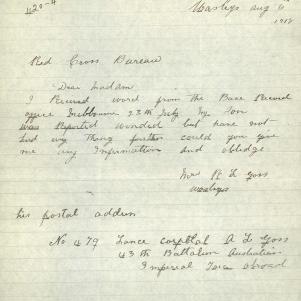 420-4
Waslys Aug 6
1918
Red Cross Bureau
Dear Madam
I Recived word from the Base Record
office Melbourne 23th July My Son
was Reported wonded but have not
had any Thing further could you give
me any Information and obledge
Mrs H L Goss
Waslys
his postal address
No 479 Lance corpltal A L Goss
43th Battalion Australian
Imperial Force abroad